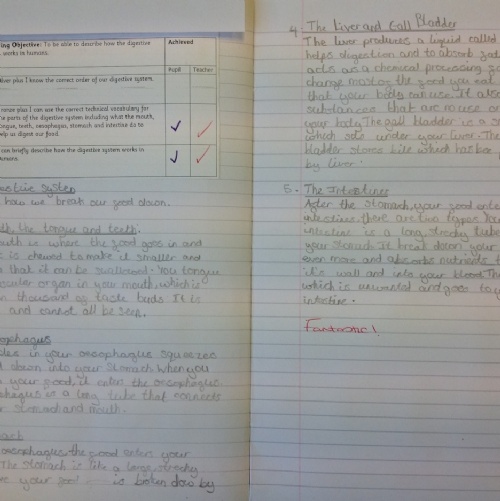 ing Objective: To be able to describe how the digestive
works in humans.
Achieved
Pupil
Teacher
plus I know the correct order of our digestive system.
plus I can use the correct technical vocabulary for
parts of the digestive system including what the mouth,
tongue, teeth, oesophagus, stomach and intestine do to
help us digest our food.
can briefly describe how the digestive system works in
humans.
estive system
how we break our food down.
the tongue and teeth.
outh is where the food goes in and
is chewed to make it smaller and
that it can be swallowed. You tongue
scular organ in your mouth, which is
thousand of taste buds. It is
and cannot all be seen.
oesophagus
in your oesophagus squeezes
down into your stomach when you
your food, it enters the oesophagus
phagus is a long tube that connects
stomach and mouth.
mach
oesophagus the food enters your
The stomach is like a large, stretchy
your food is broken dow by
4. The Liver and Gall Bladder
The liver produces a liquid called
helps digestion and to absorb
acts as a chemical processing
change most of the food you eat
that your body can use. It also
substances that are no use
your body. The gall bladder is a
which sits under your liver. The
bladder stores bile which has be
by liver.
5. The Intestines
After the stomach, your food ente
intestine. There are two types
intestine is a long, stretchy tube
your stomach It break down your
even more and absorbs nutrients
it's wall and into your blood. Th
which is unwanted and goes to
intestine.
Fantastic!